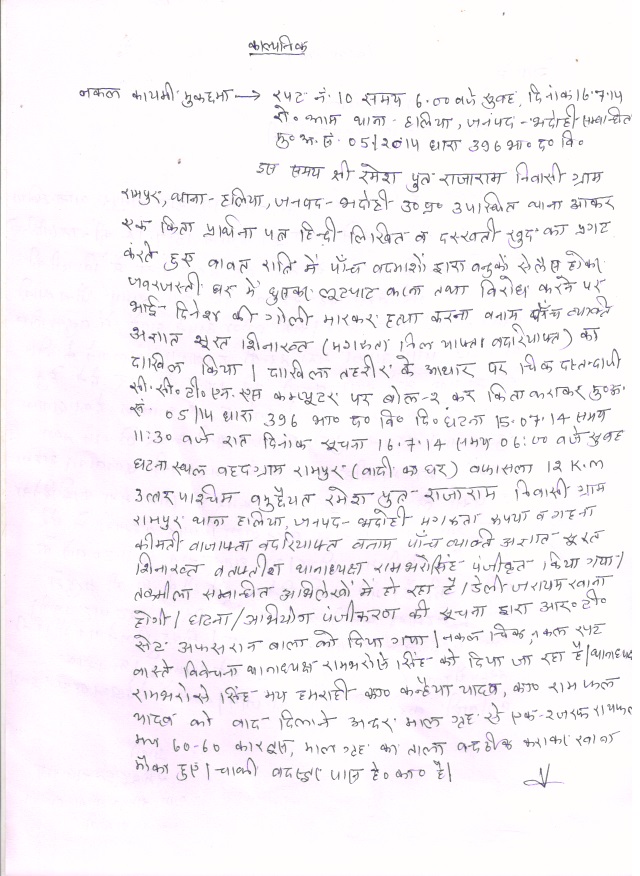 काल्पनिक
नकल कायमी मुकदमा → रपट नं. 10 समय 6.00 वजे सुवह, दिनांक 16.7.14
रो० आम थाना- हालिया, जनपद- भदोही सम्वन्धित
मु० अ० सं. 05/2014 धारा 396 भा० द० वि०
इस समय श्री रमेश पुत्र राजाराम निवासी ग्राम
रामपुर, थाना- हालिया, जनपद- भदोही उ०प्र० उपस्थित थाना आकर
एक किता प्रार्थना पत्र हिन्दी लिखित व दस्खती खुद का प्रगट
करते हुए वावत रात्रि में पाँच वदमाशों द्वारा वन्दुकों से लैस होकर
जवरजस्ती घर में घुसकर लूटपाट करना तथा विरोध करने पर
भाई- दिनेश की गोली मारकर हत्या करना वनाम पाँच व्यक्ति
अज्ञात सूरत शिनाख्त (मगरूता किल यापता वदरियाफ्त) का
दाखिल किया | दाखिला तहरीर के आधार पर चिक दस्तन्दाजी
सी. सी. टी. एन. एस कम्प्यूटर पर बोल-२ कर किता कराकर मु०अ०
सं. 05/14 धारा 396 भा० द० वि० दि० घटना 15.07.14 समय
11:30 वजे रात दिनांक सूचना 16.7.14 समय 06:00 वजे सुवह
घटना स्थल वहद ग्राम रामपुर (वादी का घर) वफासला 12 K.m
उत्तर पश्चिम वमुद्दैयत रमेश पुत्र राजाराम निवासी ग्राम
रामपुर थाना हालिया, जनपद- भदोही मगरूता रूपया व गहना
कीमती वाजाफ्ता वदरियाफ्त वनाम पाँच व्यक्ति अज्ञात सूरत
शिनाख्त वतफ्तीश थानाध्यक्ष रामभरोसे सिंह पंजीकृत किया गया |
तस्मीला सम्वन्धित अभिलेखों में हो रहा है | डेली जरायम रवाना
होगी | घटना/अभियोग पंजीकरण की सूचना द्वारा आर० टी०
सेट अफसरान वाला को दिया गया | नकल चिक, नकल रपट
वास्ते विवेचना थानाध्यक्ष रामभरोसे सिंह को दिया जा रहा है | थानाध्यक्ष
रामभरोसे सिंह मय हमराही का० कन्हैया यादव, का० राम फल
यादव को वाद दिलाने अन्दर माल गृह से एक-२ जरफ रायफल
मय 60-60 कारतूस, माल गृह का ताला वन्द ठीक कराकर रवाना
मौका हुए | चाभी वदस्तूर पास हे० का० है |